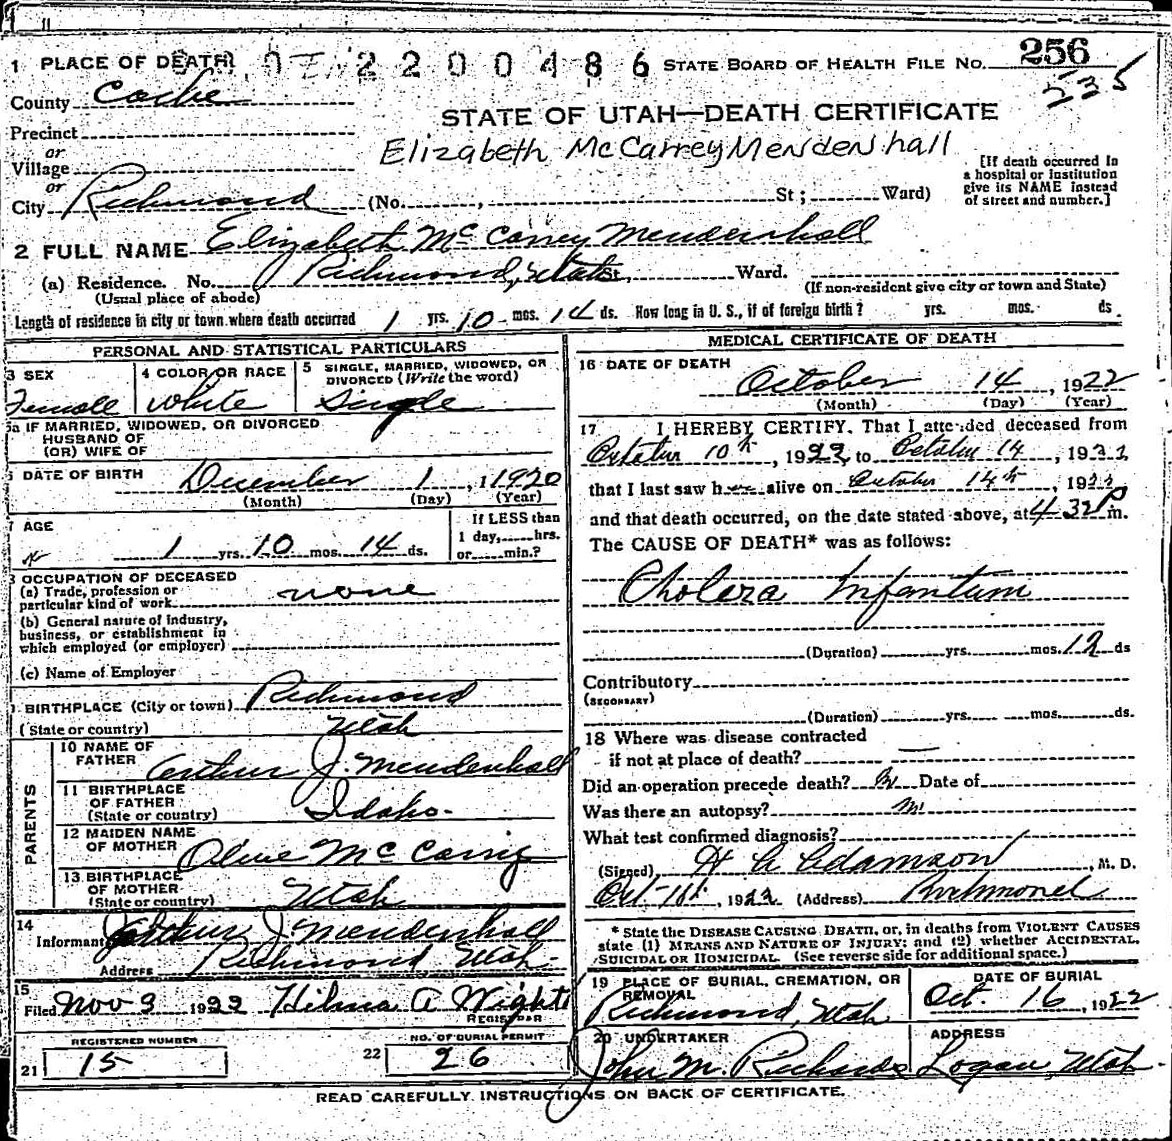 1 PLACE OF DEATH 2200486 STATE BOARD OF HEALTH FILE NO. 256
County Cache 535
STATE OF UTAH—DEATH CERTIFICATE
Precinct
or
Elizabeth McCarrey Mendenhall
Village
or
[If death occurred in a hospital or institution give its NAME instead of street and number.]
City Richmond (No. , St ; Ward)
2 FULL NAME Elizabeth McCarrey Mendenhall
(a) Residence. No. Richmond, Utah St. Ward.
(Usual place of abode) (If non-resident give city or town and State)
Length of residence in city or town where death occurred 1 yrs. 10 mos. 14 ds. How long in U. S., if of foreign birth? yrs. mos. ds.
PERSONAL AND STATISTICAL PARTICULARS
3 SEX 4 COLOR OR RACE 5 SINGLE, MARRIED, WIDOWED, OR DIVORCED (Write the word)
Female White Single
5a IF MARRIED, WIDOWED, OR DIVORCED
HUSBAND OF
(OR) WIFE OF
6 DATE OF BIRTH December 1, 1920
(Month) (Day) (Year)
7 AGE If LESS than
1 yrs. 10 mos. 14 ds. 1 day, hrs.
or min.?
8 OCCUPATION OF DECEASED
(a) Trade, profession or
particular kind of work none
(b) General nature of industry,
business, or establishment in
which employed (or employer)
(c) Name of Employer
9 BIRTHPLACE (City or town) Richmond
(State or country) Utah
PARENTS
10 NAME OF
FATHER Arthur J. Mendenhall
11 BIRTHPLACE
OF FATHER
(State or country) Idaho
12 MAIDEN NAME
OF MOTHER Olive McCarrey
13 BIRTHPLACE
OF MOTHER
(State or country) Utah
14
Informant Arthur J Mendenhall
Address Richmond Utah
15
Filed Nov 3 1922 Hilma A Wight
REGISTRAR
REGISTERED NUMBER NO. OF BURIAL PERMIT
21 15 22 26
MEDICAL CERTIFICATE OF DEATH
16 DATE OF DEATH
October 14, 1922
(Month) (Day) (Year)
17 I HEREBY CERTIFY, That I attended deceased from
October 10th, 1922, to October 14, 1922
that I last saw her alive on October 14th, 1922
and that death occurred, on the date stated above, at 4 32 P m.
The CAUSE OF DEATH* was as follows:
Cholera Infantum
(Duration) yrs. mos. 12 ds
Contributory
(SECONDARY)
(Duration) yrs. mos. ds.
18 Where was disease contracted
if not at place of death? —
Did an operation precede death? no Date of
Was there an autopsy? no
What test confirmed diagnosis?
(Signed) H A Adamson, M. D.
Oct , 1922 (Address) Richmond
* State the DISEASE CAUSING DEATH, or, in deaths from VIOLENT CAUSES
state (1) MEANS AND NATURE OF INJURY; and (2) whether ACCIDENTAL,
SUICIDAL OR HOMICIDAL. (See reverse side for additional space.)
19 PLACE OF BURIAL, CREMATION, OR REMOVAL DATE OF BURIAL
Richmond, Utah Oct. 16, 1922
20 UNDERTAKER ADDRESS
John M. Richards Logan, Utah
READ CAREFULLY INSTRUCTIONS ON BACK OF CERTIFICATE.